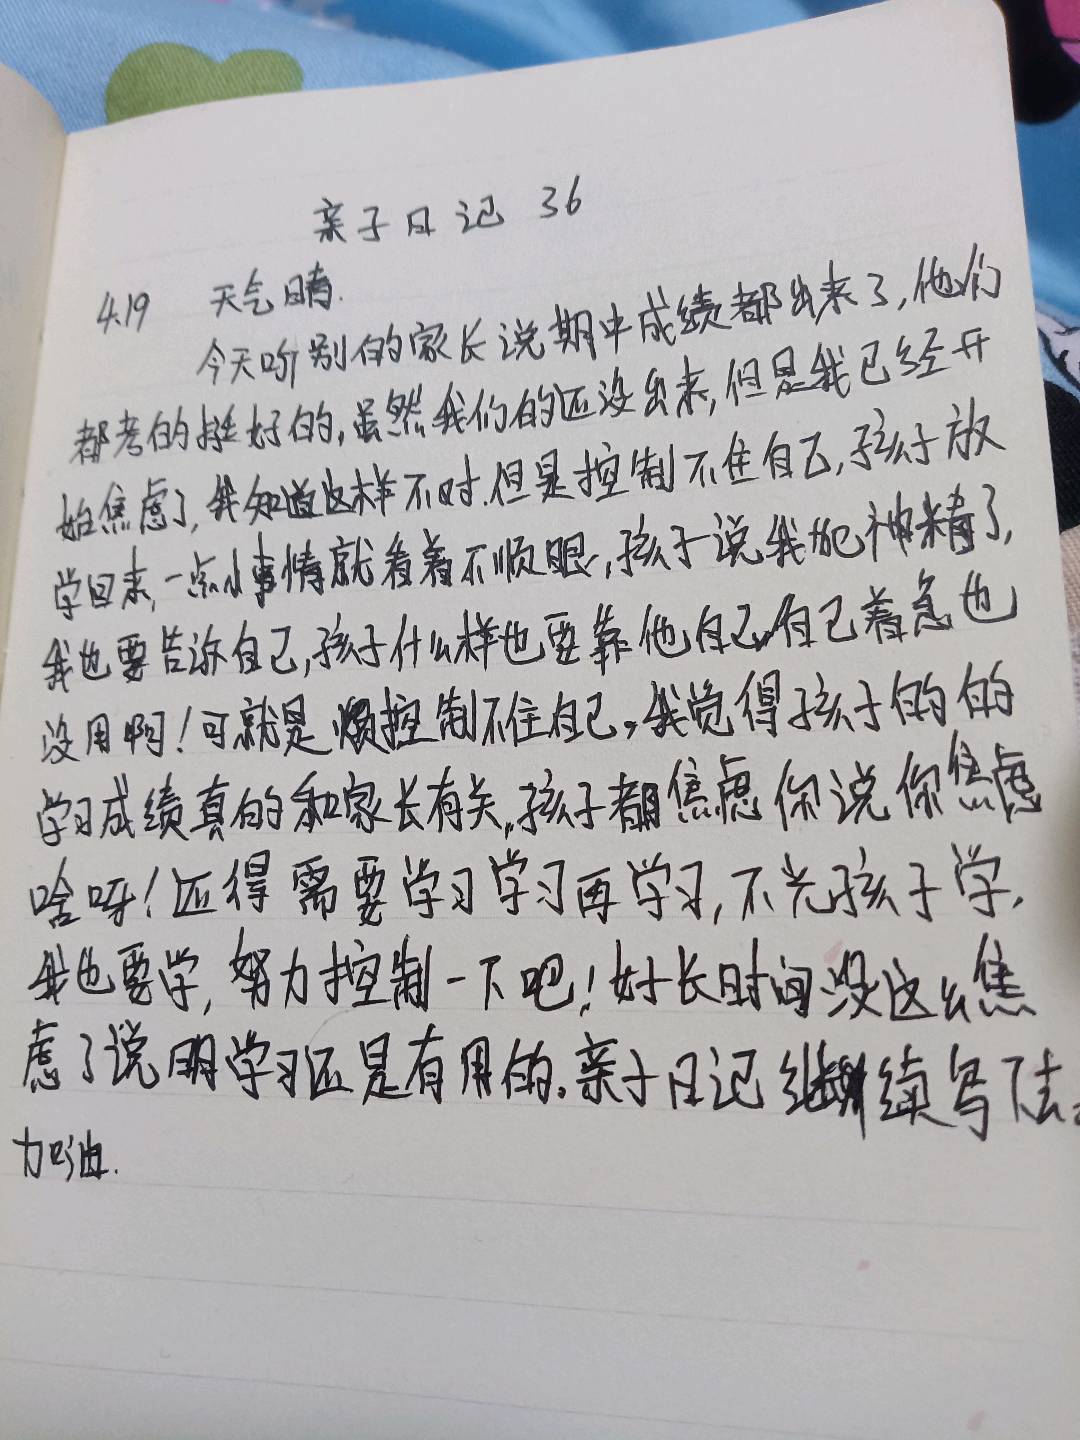 亲子日记 36
4.19 天气晴.
今天听别的家长说期中成绩都出来了,他们
都考的挺好的,虽然我们的还没出来,但是我已经开
始焦虑了,我知道这样不对.但是控制不住自己,孩子放
学回来,一点小事情就看着不顺眼,孩子说我犯神精了,
我也要告诉自己,孩子什么样也要靠他自己,自己着急也
没用啊!可就是控制不住自己。我觉得孩子的的
学习成绩真的和家长有关,孩子都没焦虑你说你焦虑
啥呀!还得需要学习学习再学习,不光孩子学,
我也要学,努力控制一下吧!好长时间没这么焦
虑了说明学习还是有用的。亲子日记继续写下去。
加油.